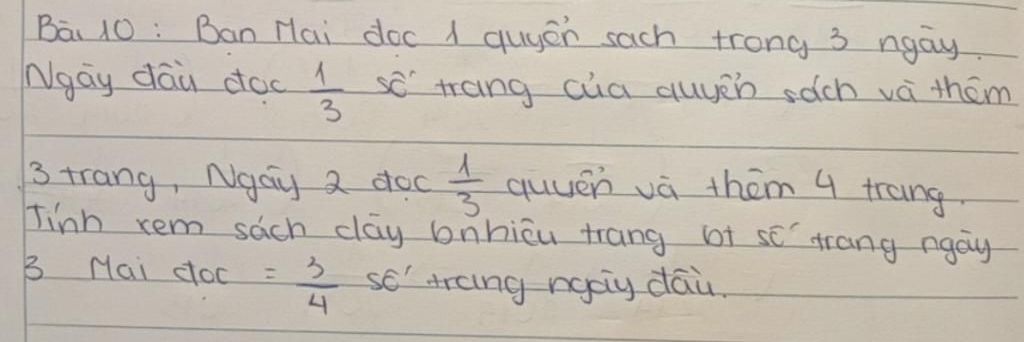 Bài 10 : Bạn Mai đọc 1 quyển sach trong 3 ngày.
Ngày đầu đọc 1/3 số trang của quyển sách và thêm
3 trang, Ngày 2 đọc 1/3 quyển và thêm 4 trang.
Tính xem sách dày bnhiêu trang bt số trang ngày
3 Mai đọc = 3/4 số trang ngày đầu.